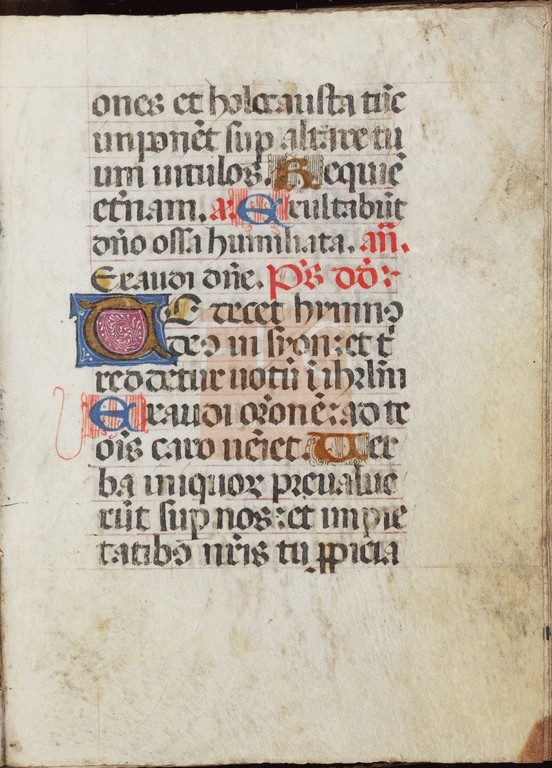 ones et holocausta tūc
inponēt sup altare tu
um uitulos. Requiē
etñam. a. Exultabūt
dño ossa humiliata. añ.
Exaudi dñe. Ps dd:
TE decet hymnꝰ
deꝰ in syon: et t̄
reddetur uotū ī ihrlm̄
Exaudi orōnē: ad te
oīs caro uēiet. Uer
ba iniquoꝝ preualue
rūt sup nos: et impie
tatibꝰ nr̄is tu ꝓpicia